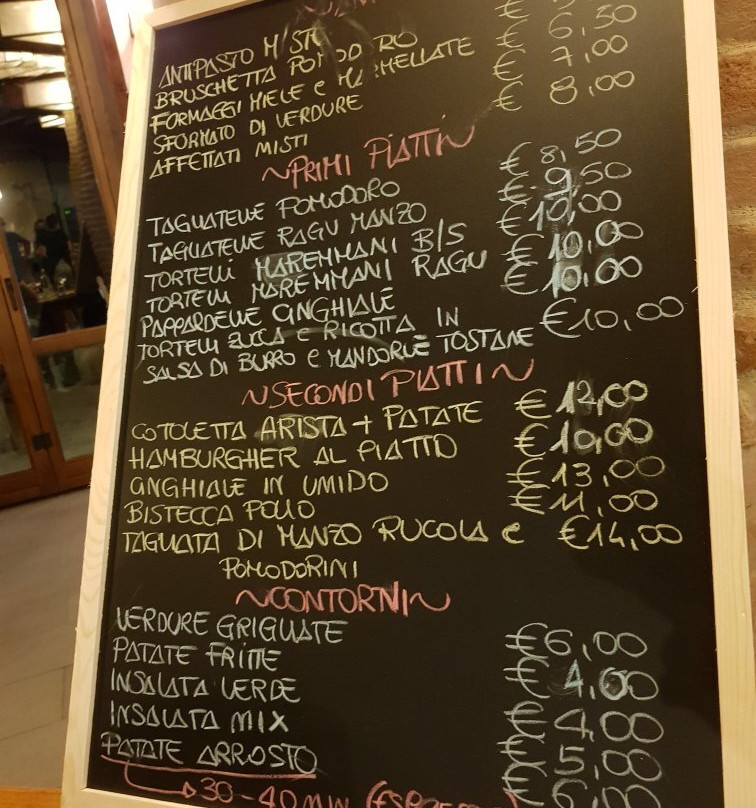 ANTIPASTO MISTO
BRUSCHETTA POMODORO € 6,50
FORMAGGI MIELE e MARMELLATE € 7,00
SFORMATO DI VERDURE € 8,00
AFFETTATI MISTI
~PRIMI PIATTI~
TAGLIATELLE POMODORO € 8,50
TAGLIATELLE RAGU MANZO € 9,50
TORTELLI MAREMMANI B/S € 10,00
TORTELLI MAREMMANI RAGU € 10,00
PAPPARDELLE CINGHIALE € 10,00
TORTELLI ZUCCA e RICOTTA IN € 10,00
SALSA DI BURRO e MANDORLE TOSTATE
~SECONDI PIATTI~
COTOLETTA ARISTA + PATATE € 12,00
HAMBURGHER AL PIATTO € 10,00
CINGHIALE IN UMIDO € 13,00
BISTECCA POLLO € 11,00
TAGLIATA DI MANZO RUCOLA e € 14,00
POMODORINI
~CONTORNI~
VERDURE GRIGLIATE € 6,00
PATATE FRITTE € 4,00
INSALATA VERDE € 4,00
INSALATA MIX € 5,00
PATATE ARROSTO € 6,00
30-40 MIN